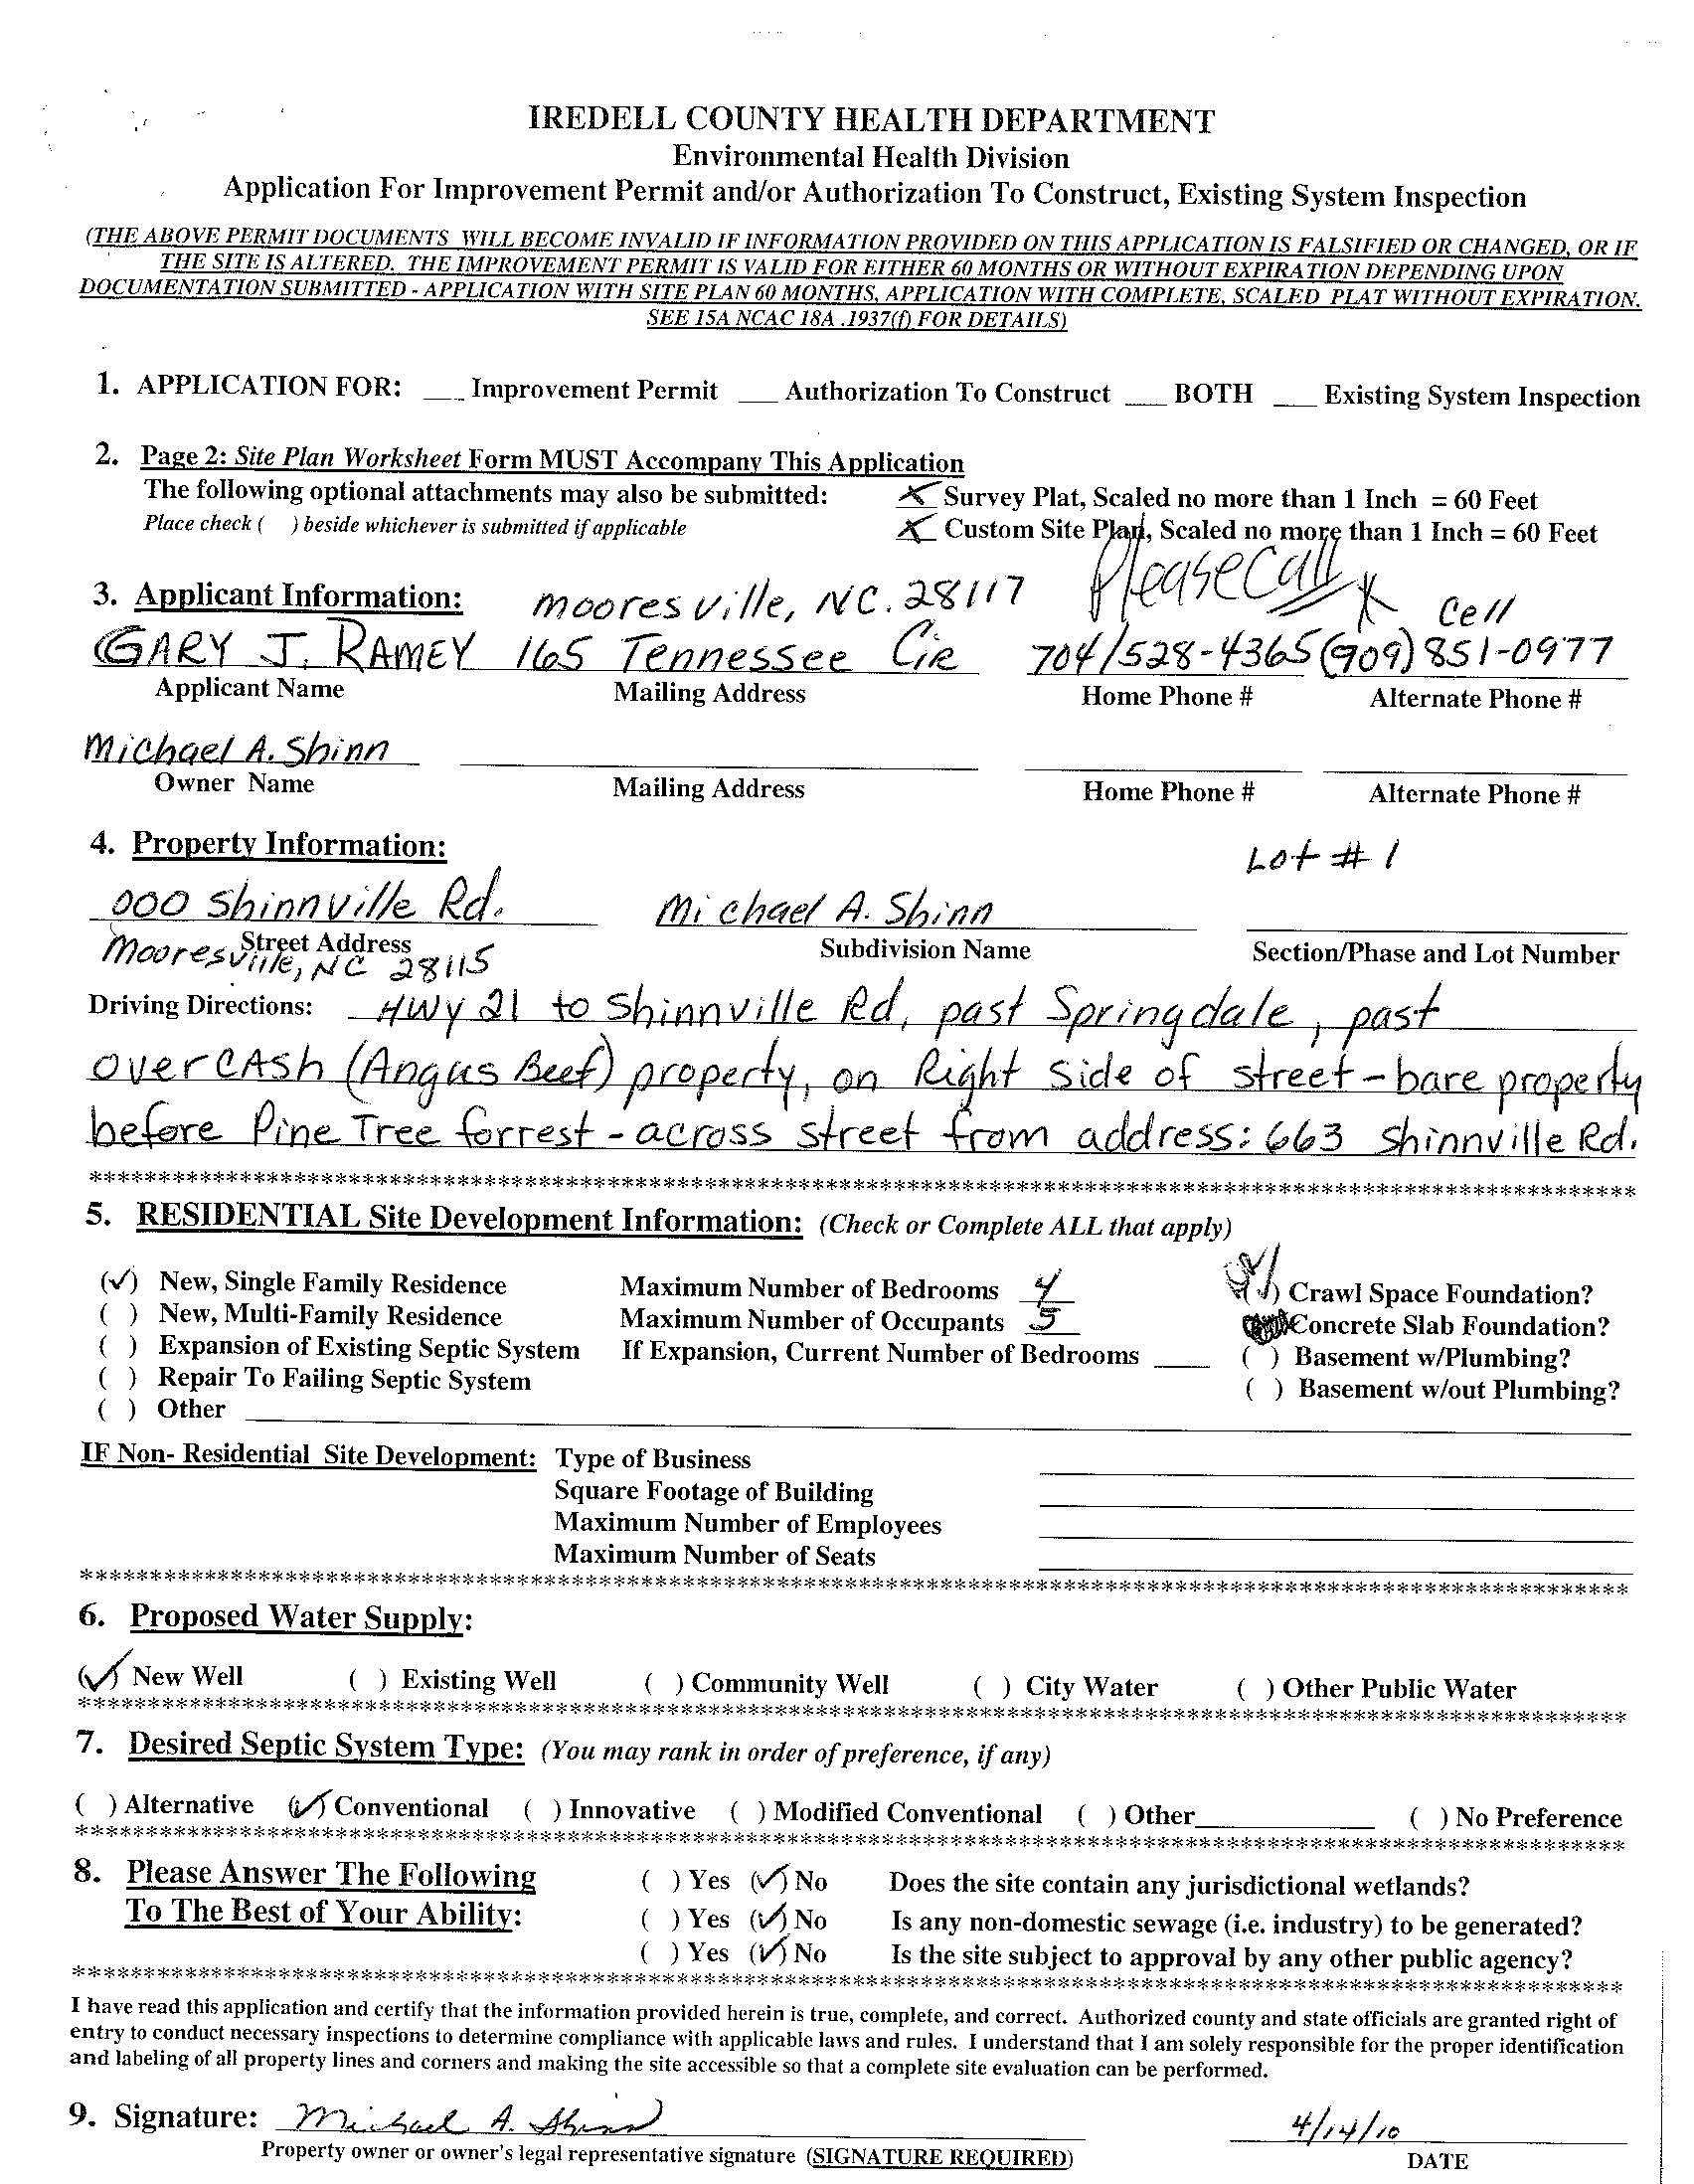 IREDELL COUNTY HEALTH DEPARTMENT
Environmental Health Division
Application For Improvement Permit and/or Authorization To Construct, Existing System Inspection
(THE ABOVE PERMIT DOCUMENTS WILL BECOME INVALID IF INFORMATION PROVIDED ON THIS APPLICATION IS FALSIFIED OR CHANGED, OR IF
THE SITE IS ALTERED. THE IMPROVEMENT PERMIT IS VALID FOR EITHER 60 MONTHS OR WITHOUT EXPIRATION DEPENDING UPON
DOCUMENTATION SUBMITTED - APPLICATION WITH SITE PLAN 60 MONTHS, APPLICATION WITH COMPLETE, SCALED PLAT WITHOUT EXPIRATION.
SEE 15A NCAC 18A .1937(f) FOR DETAILS)
1. APPLICATION FOR: ___ Improvement Permit ___ Authorization To Construct ___ BOTH ___ Existing System Inspection
2. Page 2: Site Plan Worksheet Form MUST Accompany This Application
The following optional attachments may also be submitted: X Survey Plat, Scaled no more than 1 Inch = 60 Feet
Place check ( ) beside whichever is submitted if applicable X Custom Site Plan, Scaled no more than 1 Inch = 60 Feet
Please Call
3. Applicant Information: Mooresville, NC. 28117 Cell
GARY J. RAMEY 165 Tennessee Cir 704/528-4365 (909) 851-0977
Applicant Name Mailing Address Home Phone # Alternate Phone #
Michael A. Shinn
Owner Name Mailing Address Home Phone # Alternate Phone #
4. Property Information: Lot # 1
000 Shinnville Rd. Michael A. Shinn
Street Address Subdivision Name Section/Phase and Lot Number
Mooresville, NC 28115
Driving Directions: HWY 21 to Shinnville Rd, past Springdale, past
overCAsh (Angus Beef) property, on Right side of street - bare property
before Pine Tree forrest - across street from address: 663 Shinnville Rd.
5. RESIDENTIAL Site Development Information: (Check or Complete ALL that apply)
(✓) New, Single Family Residence Maximum Number of Bedrooms 4 (✓) Crawl Space Foundation?
( ) New, Multi-Family Residence Maximum Number of Occupants 5 Concrete Slab Foundation?
( ) Expansion of Existing Septic System If Expansion, Current Number of Bedrooms ____ ( ) Basement w/Plumbing?
( ) Repair To Failing Septic System ( ) Basement w/out Plumbing?
( ) Other
IF Non- Residential Site Development: Type of Business
Square Footage of Building
Maximum Number of Employees
Maximum Number of Seats
6. Proposed Water Supply:
(✓) New Well ( ) Existing Well ( ) Community Well ( ) City Water ( ) Other Public Water
7. Desired Septic System Type: (You may rank in order of preference, if any)
( ) Alternative (✓) Conventional ( ) Innovative ( ) Modified Conventional ( ) Other____ ( ) No Preference
8. Please Answer The Following ( ) Yes (✓) No Does the site contain any jurisdictional wetlands?
To The Best of Your Ability: ( ) Yes (✓) No Is any non-domestic sewage (i.e. industry) to be generated?
( ) Yes (✓) No Is the site subject to approval by any other public agency?
I have read this application and certify that the information provided herein is true, complete, and correct. Authorized county and state officials are granted right of
entry to conduct necessary inspections to determine compliance with applicable laws and rules. I understand that I am solely responsible for the proper identification
and labeling of all property lines and corners and making the site accessible so that a complete site evaluation can be performed.
9. Signature: Michael A. Shinn 4/14/10
Property owner or owner's legal representative signature (SIGNATURE REQUIRED) DATE